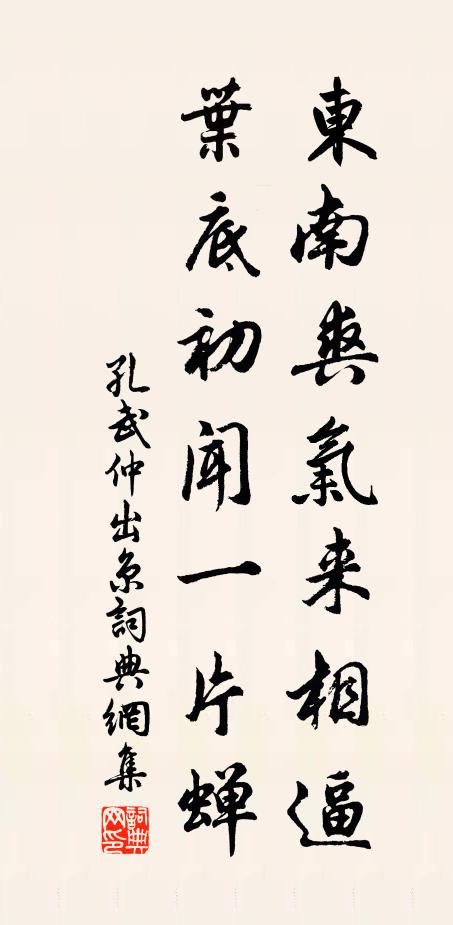 東南爽氣来相逼
葉底初聞一片蟬
孔武仲出京詞典網集
詞典
网印